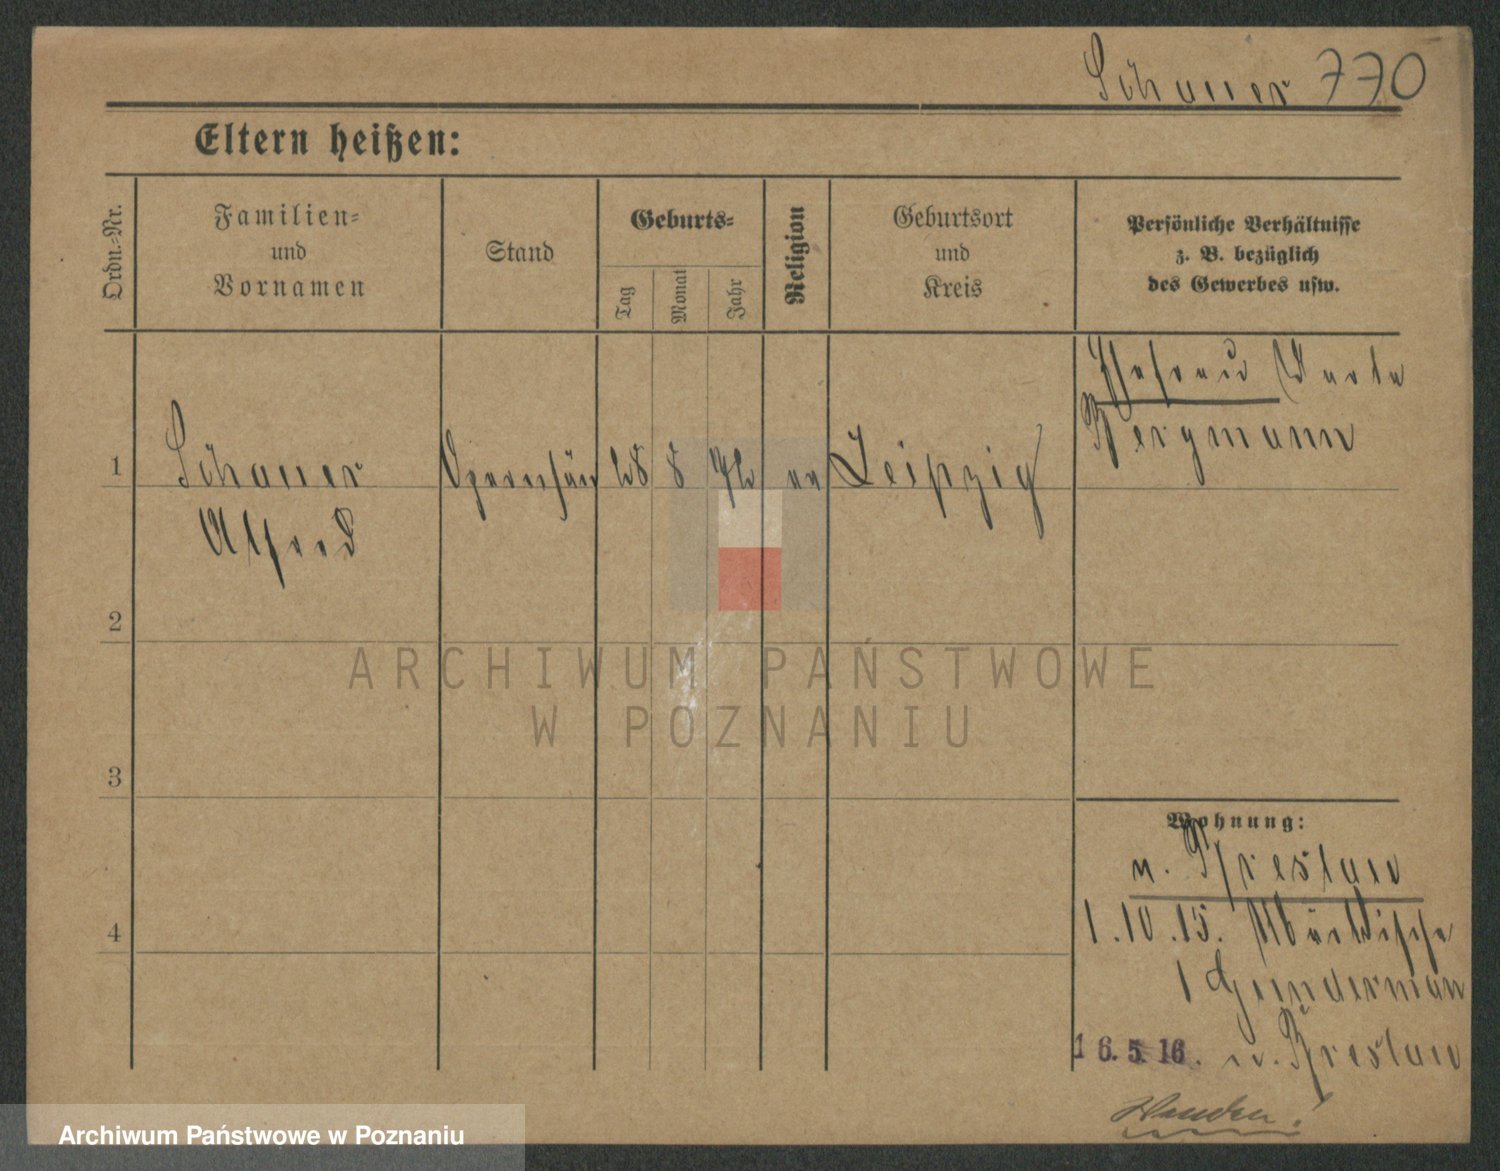 Schauer 770
Eltern heißen:
Ordn.-Nr.
Familien-
und
Vornamen
Stand
Geburts-
Tag
Monat
Jahr
Religion
Geburtsort
und
Kreis
Persönliche Verhältnisse
z. B. bezüglich
des Gewerbes usw.
1 Schauer
Alfred
28 8 72
Leipzig
Ehefrau
Bergmann
2
3
4
Wohnung:
n. Breslau
1.10.15. Märkische
1 Gunderman
16.5.16. n. Breslau
Wenden!
ARCHIWUM PAŃSTWOWE
W POZNANIU
Archiwum Państwowe w Poznaniu